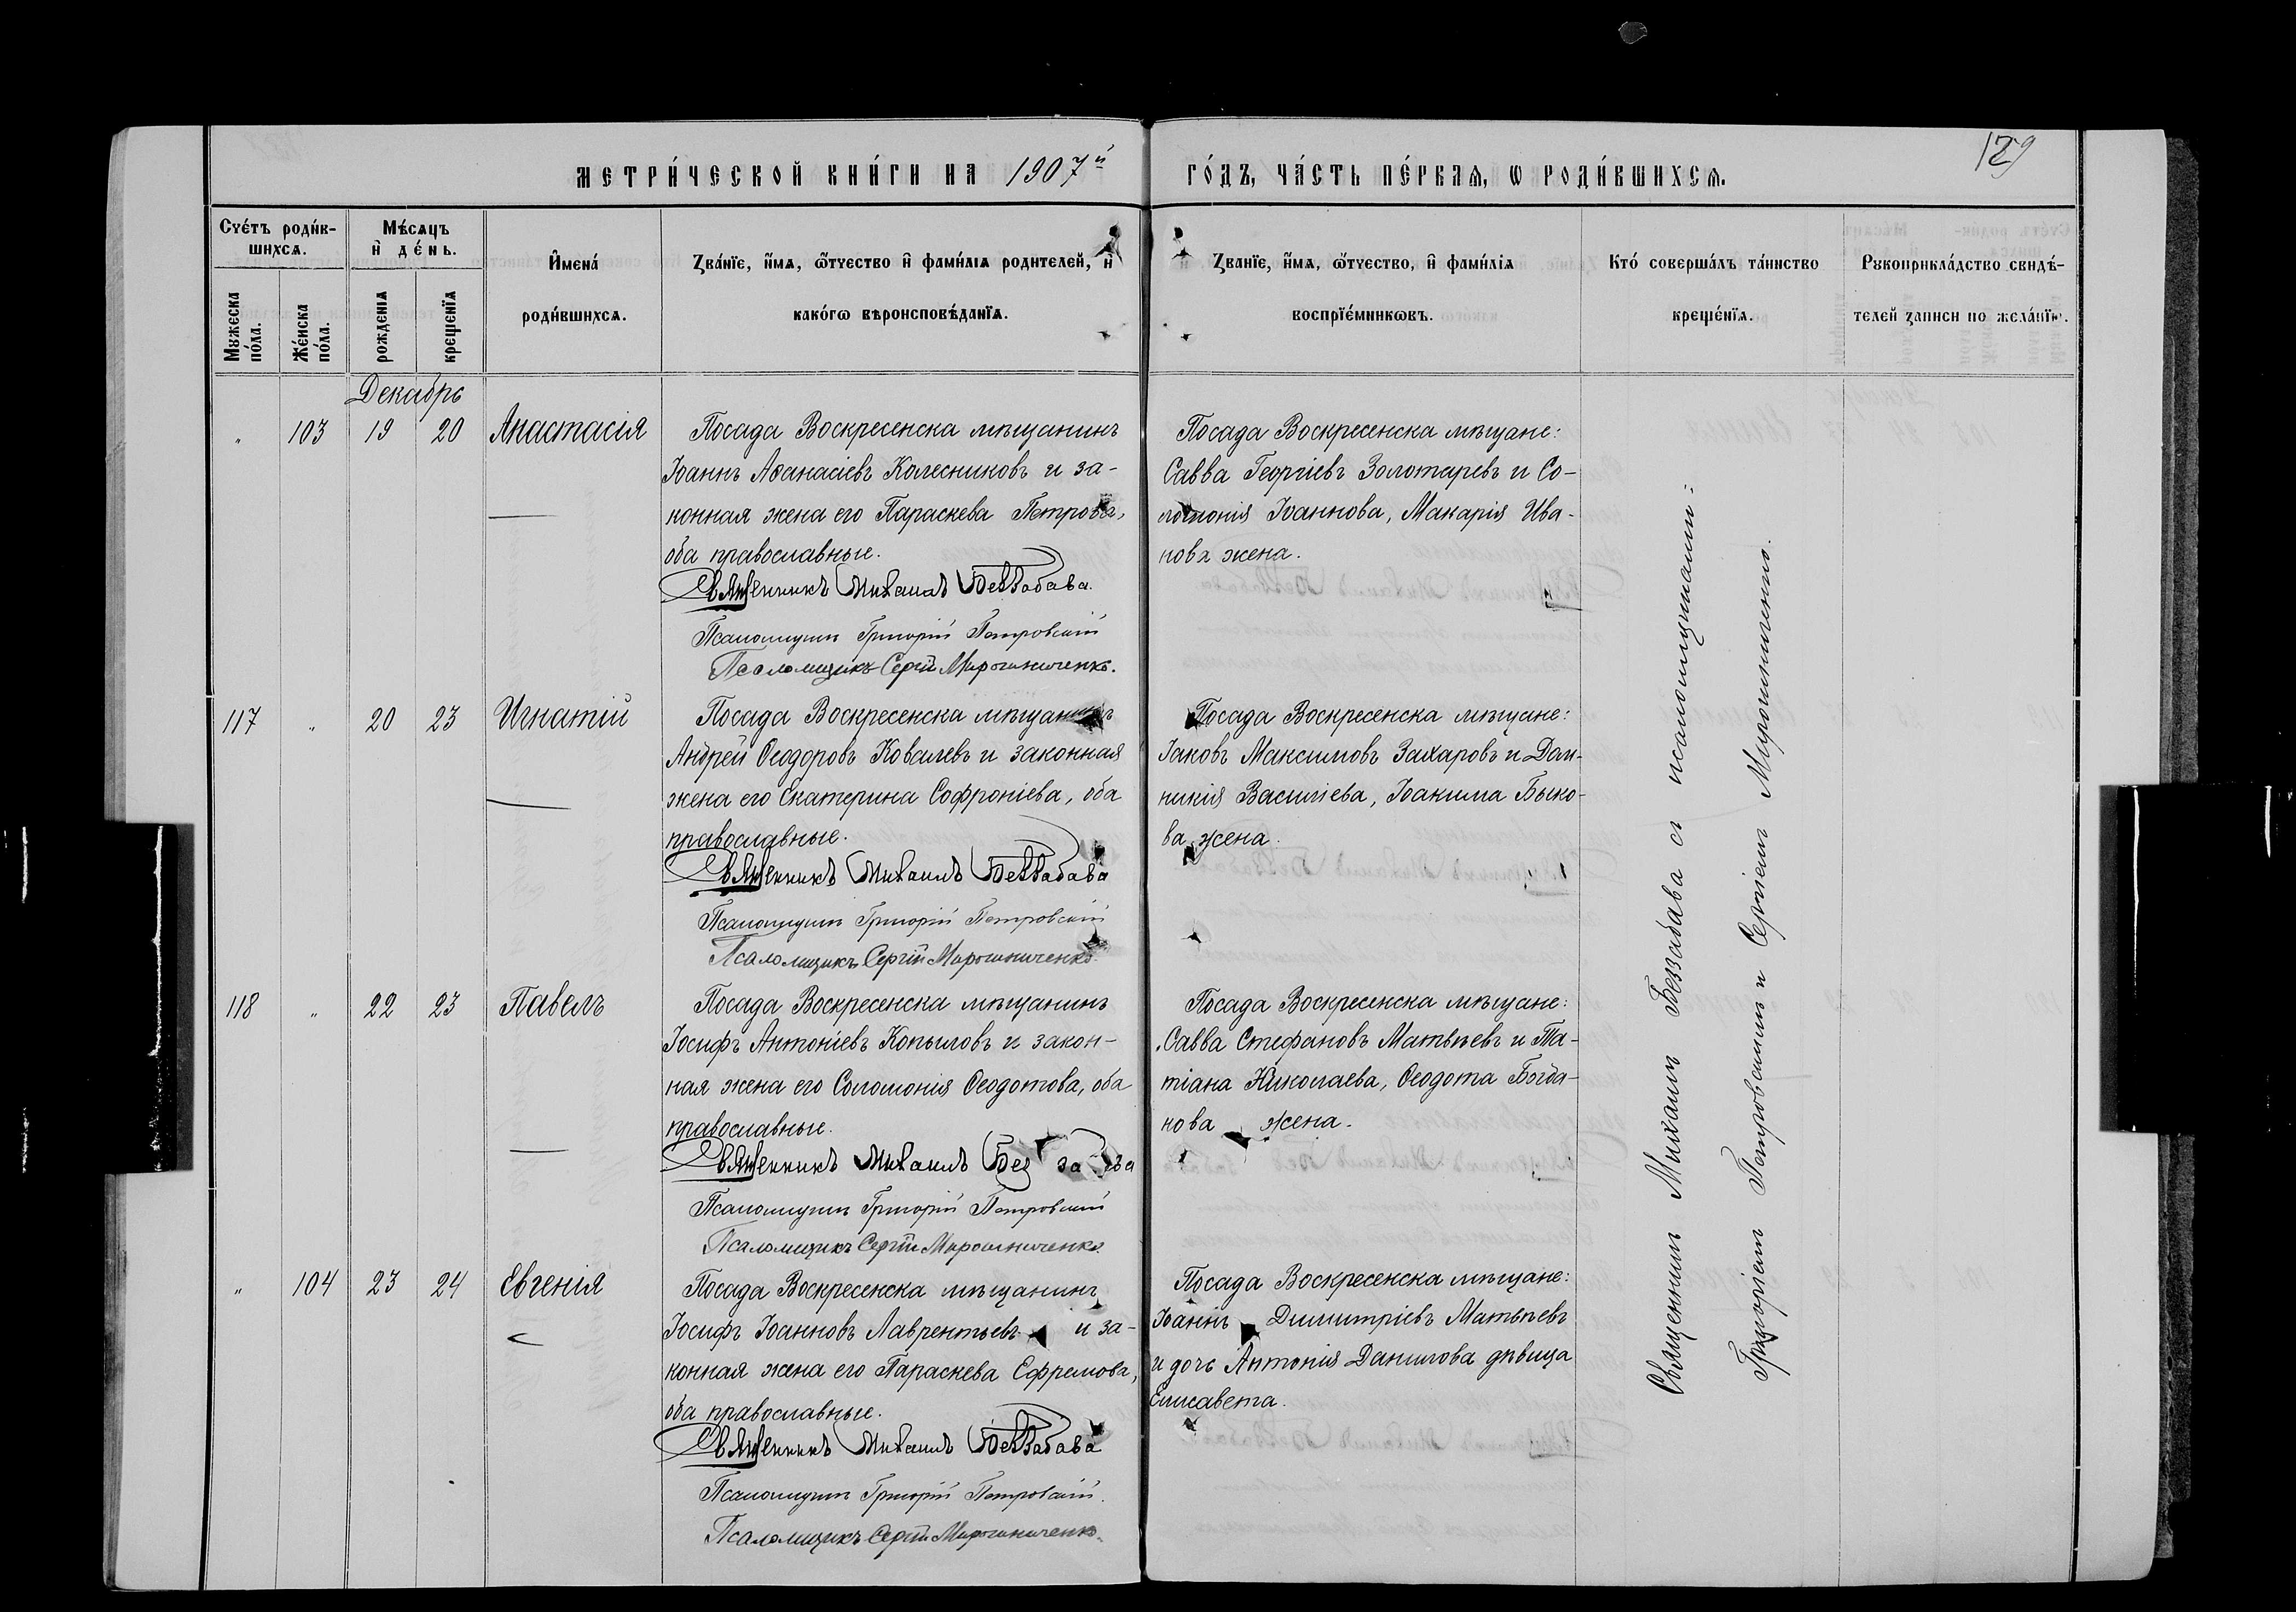 МЕТРИ́ЧЕСКОЙ КНИ́ГИ НА 1907й ГО́ДЪ, ЧА́СТЬ ПЕ́РВАѦ, Ѡ РОДИ́ВШИХСѦ.
129
Счéтъ роди́в-
шихсѧ.
Мꙋжеска
по́ла.
Же́нска
по́ла.
Мѣ́сѧцъ
и҆ де́нь.
рожденїѧ
крещенїѧ
И҆мена́
роди́вшихсѧ.
Зва́нїе, и҆́мѧ, ѻ҆́тчество и҆ фами́лїѧ родителей, и҆
како́гѡ вѣроисповѣ́данїѧ.
Зва́нїе, и҆́мѧ, ѻ҆́тчество, и҆ фами́лїѧ
воспрїе́мникѡвъ.
Кто́ соверша́лъ та́инство
креще́нїѧ.
Рꙋкоприкла́дство свидѣ́-
телей записи по жела́нїю.
Декабрь
" 103 19 20 Анастасія
Посада Воскресенска мѣщанинъ
Іоаннъ Аѳанасіевъ Колесниковъ и за-
конная жена его Параскева Петрова,
оба православные.
Священникъ Михаилъ Беззабава.
Псаломщикъ Григорій Петровскій
Псаломщикъ Сергій Мирошниченко.
Посада Воскресенска мѣщане:
Савва Георгіевъ Золотаревъ и Со-
ломонія Іоаннова, Макарія Ива-
нова жена.
117 " 20 23 Игнатій
Посада Воскресенска мѣщанинъ
Андрей Ѳеодоровъ Ковалевъ и законная
жена его Екатерина Софроніева, оба
православные.
Священникъ Михаилъ Беззабава
Псаломщикъ Григорій Петровскій
Псаломщикъ Сергій Мирошниченко.
Посада Воскресенска мѣщане:
Іаковъ Максимовъ Захаровъ и Дом-
никія Василіева, Іоакима Быко-
ва жена.
118 " 22 23 Павелъ
Посада Воскресенска мѣщанинъ
Іосифъ Антоніевъ Копыловъ и закон-
ная жена его Соломонія Ѳеодотова, оба
православные.
Священникъ Михаилъ Беззабава
Псаломщикъ Григорій Петровскій
Псаломщикъ Сергій Мирошниченко.
Посада Воскресенска мѣщане:
Савва Стефановъ Матвѣевъ и Та-
тіана Николаева, Ѳеодота Богда-
нова жена.
" 104 23 24 Евгенія
Посада Воскресенска мѣщанинъ
Іосифъ Іоанновъ Лаврентьевъ и за-
конная жена его Параскева Ефремова,
оба православные.
Священникъ Михаилъ Беззабава
Псаломщикъ Григорій Петровскій.
Псаломщикъ Сергій Мирошниченко.
Посада Воскресенска мѣщане:
Іоаннъ Димитріевъ Матвѣевъ
и дочь Антонія Данилова дѣвица
Елисавета.
Священникъ Михаилъ Беззабава съ псаломщиками:
Григоріемъ Петровскимъ и Сергіемъ Мирошниченко.